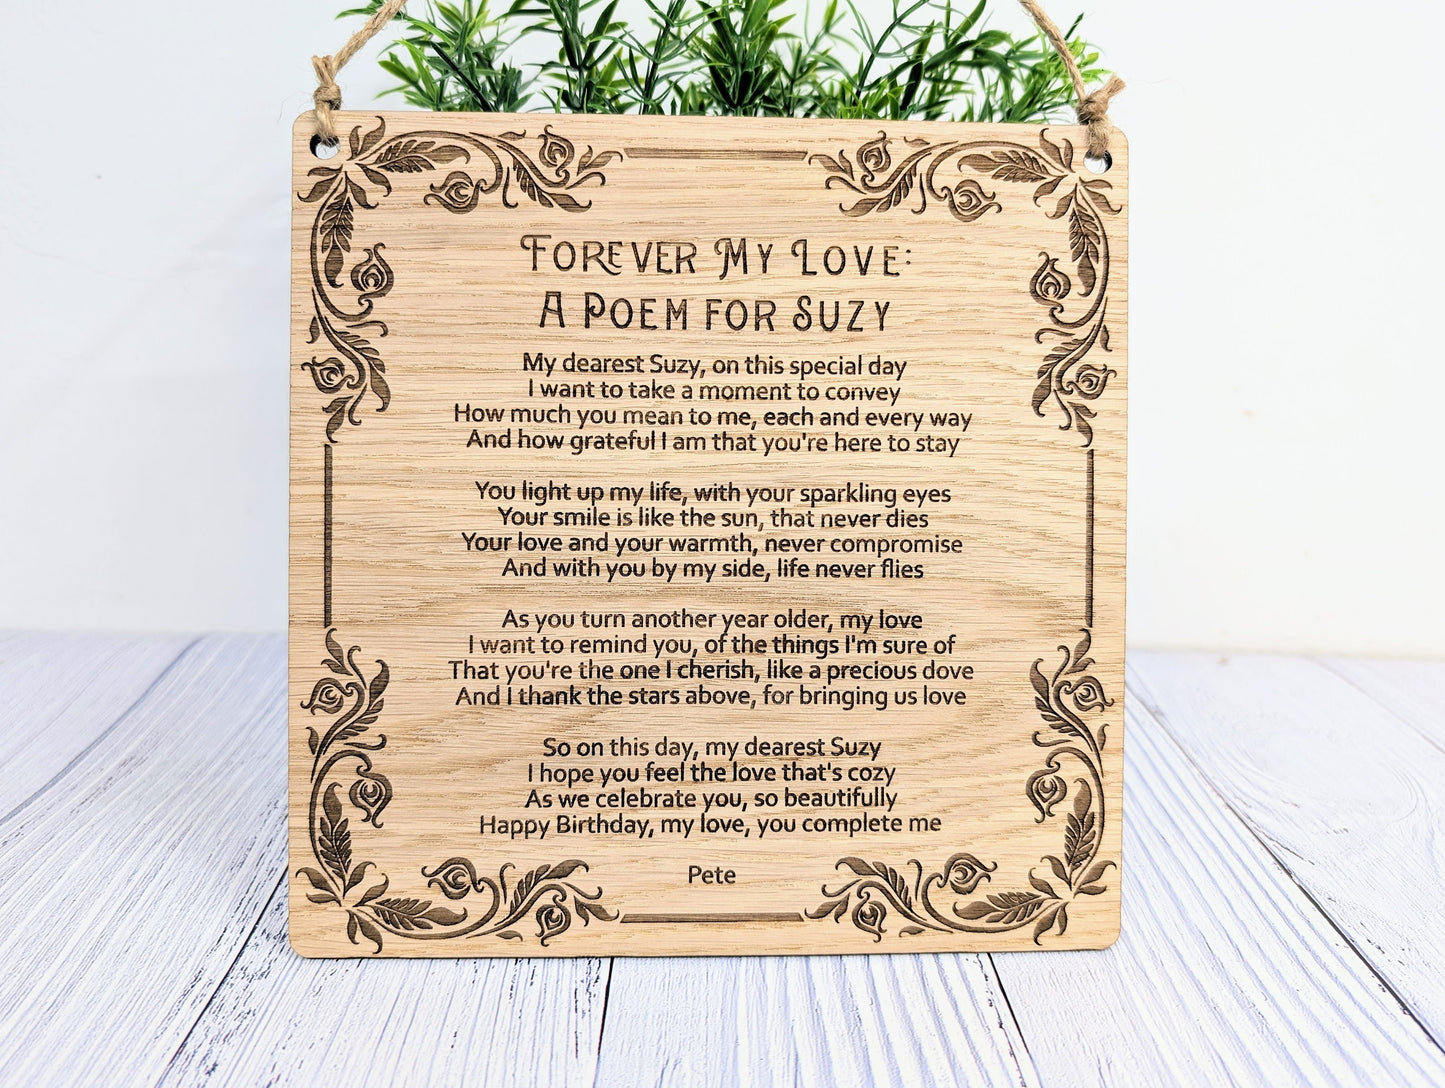 Forever My Love:
A Poem for Suzy
My dearest Suzy, on this special day
I want to take a moment to convey
How much you mean to me, each and every way
And how grateful I am that you're here to stay
You light up my life, with your sparkling eyes
Your smile is like the sun, that never dies
Your love and your warmth, never compromise
And with you by my side, life never flies
As you turn another year older, my love
I want to remind you, of the things I'm sure of
That you're the one I cherish, like a precious dove
And I thank the stars above, for bringing us love
So on this day, my dearest Suzy
I hope you feel the love that's cozy
As we celebrate you, so beautifully
Happy Birthday, my love, you complete me
Pete